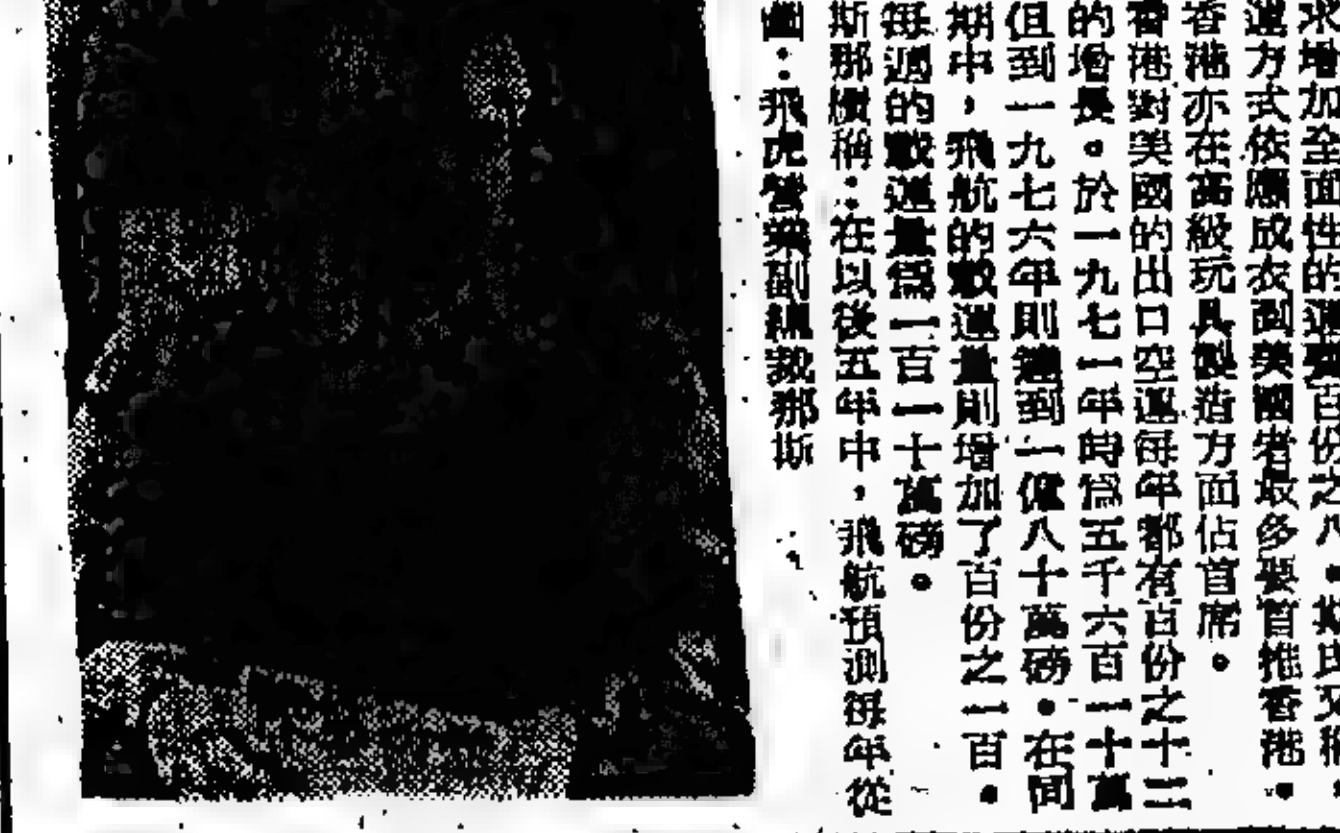 求增加全面性的運費百份之八。
運方式依應成衣到美國者最多要首推香港。
香港亦在高級玩具製造方面佔首席。
香港對美國的出口空運每年都有百份之十二
的增長。於一九七一年時爲五千六百一十萬
但到一九七六年則達到一億八十萬磅。在同
期中，飛航的載運量則增加了百份之一百。
每週的載運量爲一百一十萬磅。
斯那續稱：在以後五年中，飛航預測每年從
圖：飛虎營業副總裁那斯